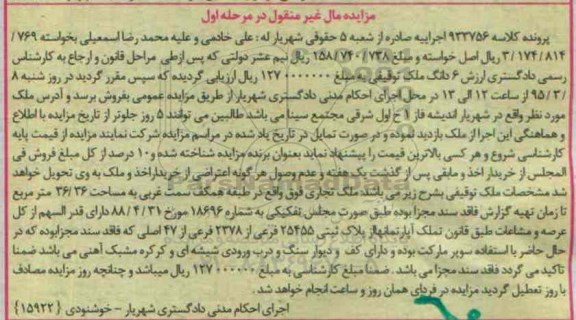 مزایده مال غیر منقول در مرحله اول
پرونده کلاسه ۹۳۳۷۵۶ اجراییه صادره از شعبه ۵ حقوقی شهریار له : علی خادمی و علیه محمد رضا اسمعیلی بخواسته ۷۶۹/
۳/۱۷۴/۸۱۴ ریال اصل خواسته و مبلغ ۱۵۸/۷۴۰/۷۳۸ ریال نیم عشر دولتی که پس از طی مراحل قانون و ارجاع به کارشناس
رسمی دادگستری ارزش ۶ دانگ ملک توقیفی به مبلغ ۱۲۷۰۰۰۰۰۰۰ ریال ارزیابی گردیده که سپس مقرر گردید در روز شنبه ۸
/۳/۹۵ از ساعت ۱۲ الی ۱۳ در محل اجرای احکام مدنی دادگستری شهریار از طریق مزایده عمومی بفروش برسد و آدرس ملک
مورد نظر واقع در شهریار اندیشه فاز ۱ خ اول شرقی مجتمع سینا می باشد طالبین می توانند ۵ روز جلوتر از تاریخ مزایده با اطلاع
و هماهنگی این اجرا از ملک بازدید نموده و در صورت تمایل در تاریخ یاد شده در مراسم مزایده شرکت نمایند مزایده از قیمت پایه
کارشناسی شروع و هر کسی بالاترین قیمت را پیشنهاد نماید بعنوان برنده مزایده شناخته شده و ۱۰ درصد از کل مبلغ فروش فی
المجلس از خریدار اخذ و مابقی پس از گذشت یک هفته و عدم وصول هر گونه اعتراضی از خریدار اخذ و ملک به وی تحویل خواهد
شد مشخصات ملک توقیفی بشرح زیر می باشد ملک تجاری فوق واقع در طبقه همکف سمت غربی به مساحت ۳۶/۳۶ متر مربع
تا زمان تهیه گزارش فاقد سند مجزا بوده طبق صورت مجلس تفکیکی به شماره ۱۸۶۹۶ مورخ ۸۸/۴/۳۱ دارای قدر السهم از کل
عرصه و مشاعات طبق قانون تملک آپارتمانها از پلاک ثبتی ۲۵۴۵۵ فرعی از ۲۳۷۸ فرعی از ۴۷ اصلی که فاقد سند مجزا بوده که در
حال حاضر با استفاده سوپر مارکت بوده و دارای کف و دیوار سنگ و درب ورودی شیشه ای و کرکره مشبک آهنی می باشد ضمنا
تاکید می گردد فاقد سند مجزا می باشد . ضمنا مبلغ کارشناسی به مبلغ ۱۲۷۰۰۰۰۰۰۰ ریال میباشد و چنانچه روز مزایده مصادف
با روز تعطیل گردید مزایده در فردای همان روز و ساعت انجام خواهد شد .
اجرای احکام مدنی دادگستری شهریار - خوشنودی {۱۵۹۲۲}